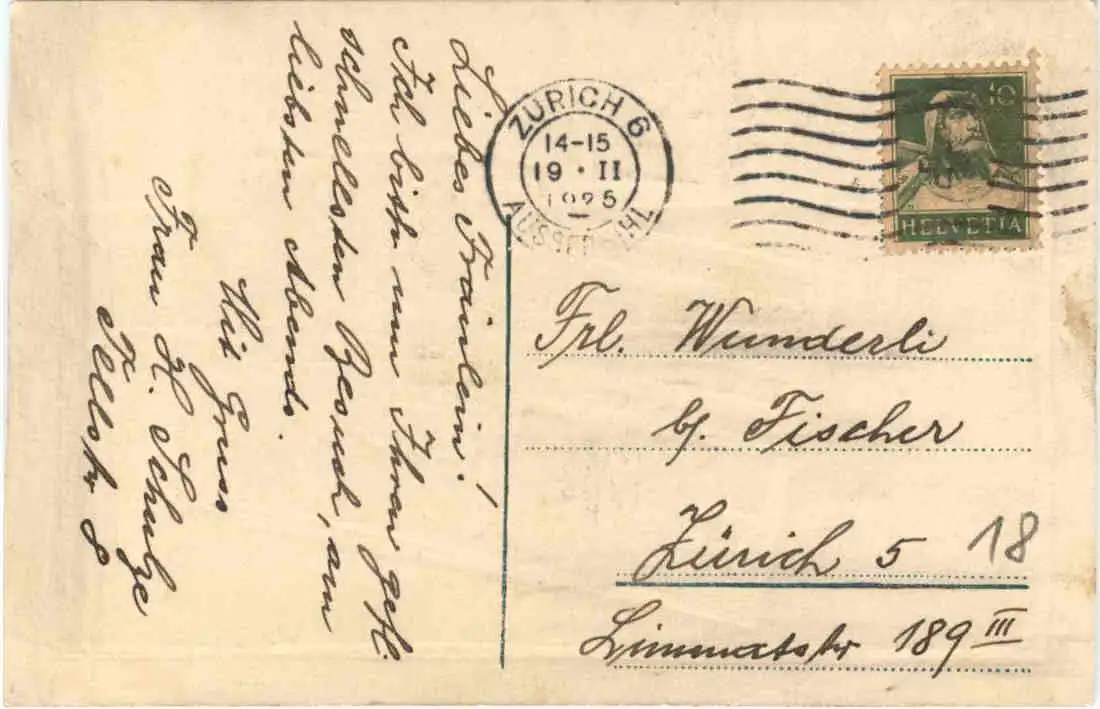 Liebes Fräulein!
Ich bitte um Ihren gefl.
schnellsten Besuch, am
liebsten Abends.
Mit Gruss
Frau H. Schulze
8
ZÜRICH 6
14-15
19 • II
1925
AUSSERSIHL
10
HELVETIA
Frl. Wunderli
b/. Fischer
Zürich 5
18
Limmatstr 189 III